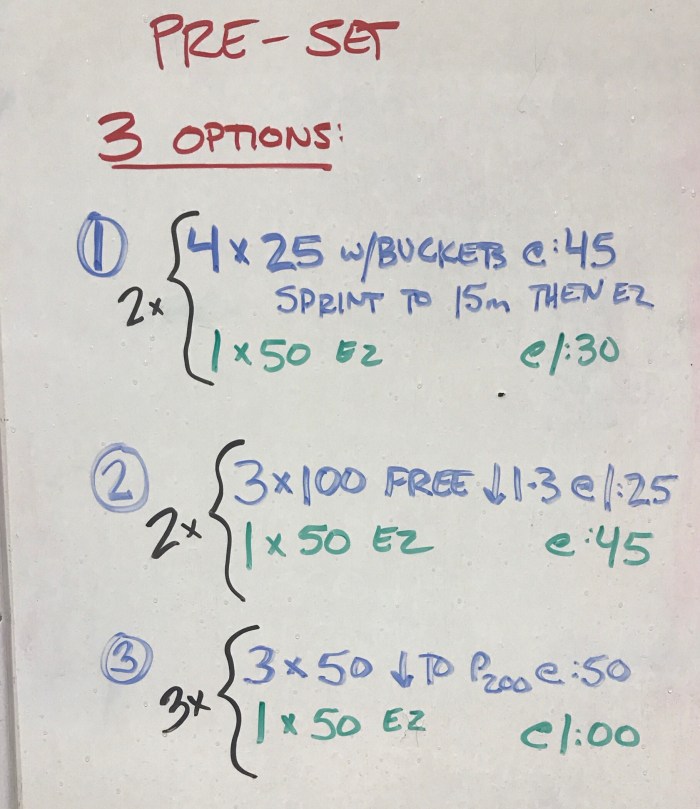 PRE-SET
3 OPTIONS:
① 4 x 25 w/BUCKETS @:45
2x SPRINT TO 15m THEN EZ
1 x 50 EZ @1:30
② 3x100 FREE ↓1-3 @1:25
2x 1 x 50 EZ @:45
③ 3 x 50 ↓ TO P200 @:50
3x 1 x 50 EZ @1:00